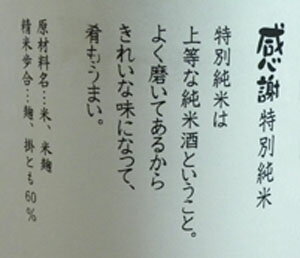 感謝 特別純米
特別純米は
上等な純米酒ということ。
よく磨いてあるから
きれいな味になって、
肴もうまい。
原材料名：米、米麹
精米歩合：麹、掛とも60％